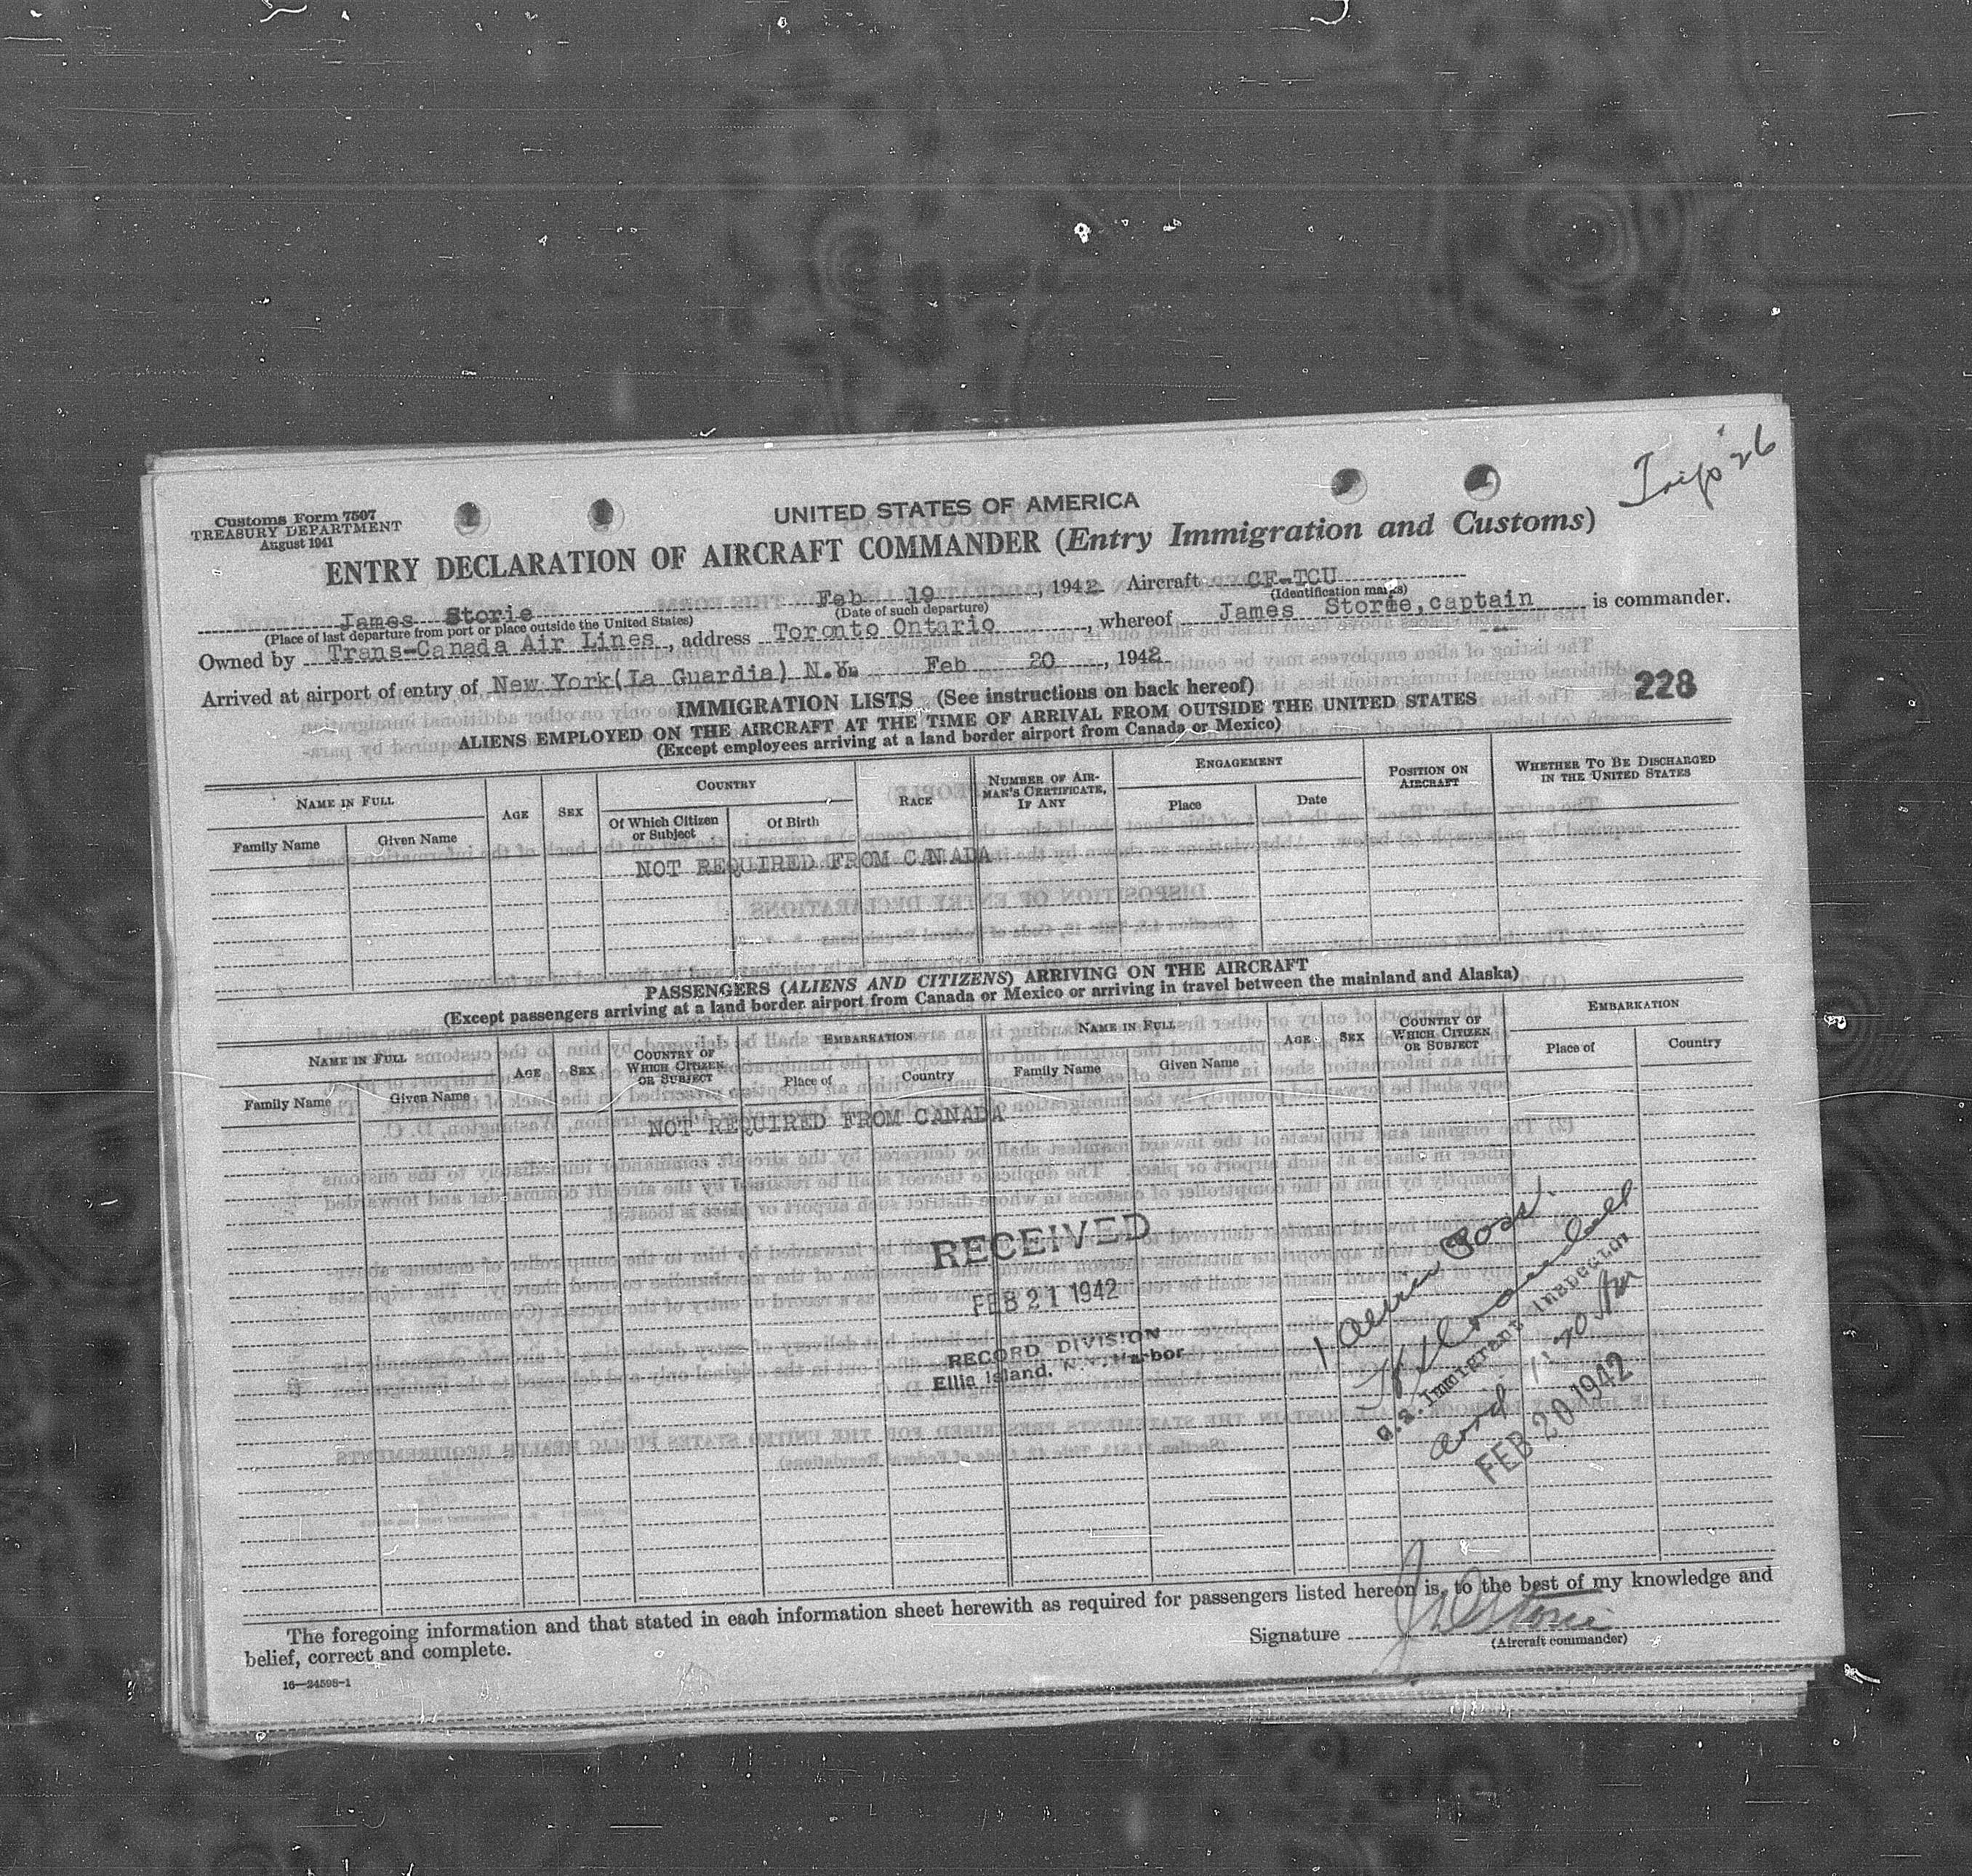 Trip 26
Customs Form 7507
TREASURY DEPARTMENT
August 1941
UNITED STATES OF AMERICA
ENTRY DECLARATION OF AIRCRAFT COMMANDER (Entry Immigration and Customs)
James Storie Feb 19, 1942 Aircraft CF-TCU
(Place of last departure from port or place outside the United States) (Date of such departure) (Identification marks)
Owned by Trans-Canada Air Lines, address Toronto Ontario, whereof James Storie, captain is commander.
Arrived at airport of entry of New York(La Guardia) N.Y. Feb 20, 1942
228
IMMIGRATION LISTS (See instructions on back hereof)
ALIENS EMPLOYED ON THE AIRCRAFT AT THE TIME OF ARRIVAL FROM OUTSIDE THE UNITED STATES
(Except employees arriving at a land border airport from Canada or Mexico)
NAME IN FULL AGE SEX COUNTRY RACE NUMBER OF AIRMAN'S CERTIFICATE, IF ANY ENGAGEMENT POSITION ON AIRCRAFT WHETHER TO BE DISCHARGED IN THE UNITED STATES
Family Name Given Name Of Which Citizen or Subject Of Birth Place Date
NOT REQUIRED FROM CANADA
PASSENGERS (ALIENS AND CITIZENS) ARRIVING ON THE AIRCRAFT
(Except passengers arriving at a land border airport from Canada or Mexico or arriving in travel between the mainland and Alaska)
NAME IN FULL AGE SEX COUNTRY OF WHICH CITIZEN OR SUBJECT EMBARKATION NAME IN FULL AGE SEX COUNTRY OF WHICH CITIZEN OR SUBJECT EMBARKATION
Family Name Given Name Place of Country Family Name Given Name Place of Country
NOT REQUIRED FROM CANADA
RECEIVED
FEB 21 1942
RECORD DIVISION
Ellis Island, N.Y. Harbor
1
U.S. Immigrant Inspector
FEB 20 1942
The foregoing information and that stated in each information sheet herewith as required for passengers listed hereon is, to the best of my knowledge and
belief, correct and complete.
Signature Storie
(Aircraft commander)
16—24598-1